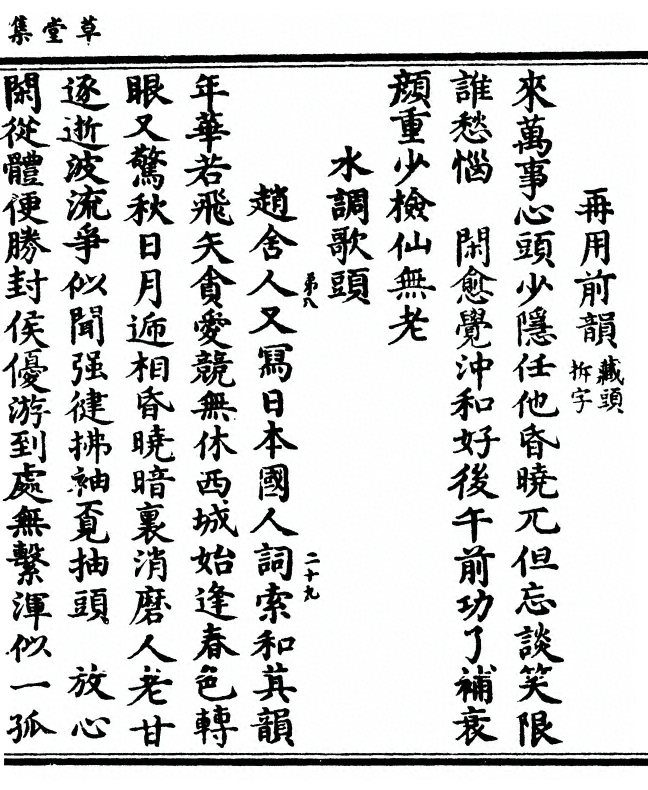 草堂集
再用前韻 藏頭拆字
來萬事心頭少隱任他昏曉兀但忘談笑限
誰愁惱　閑愈覺沖和好後午前功了補衰
顏重少檢仙無老
水調歌頭
趙舍人又冩日本國人詞索和其韻
年華若飛矢貪愛競無休西城始逢春色轉
眼又驚秋日月逓相昏曉暗裏消磨人老甘
逐逝波流爭似聞强健拂袖覔抽頭　放心
閑從體便勝封侯優游到處無繫渾似一孤
第八
二十九